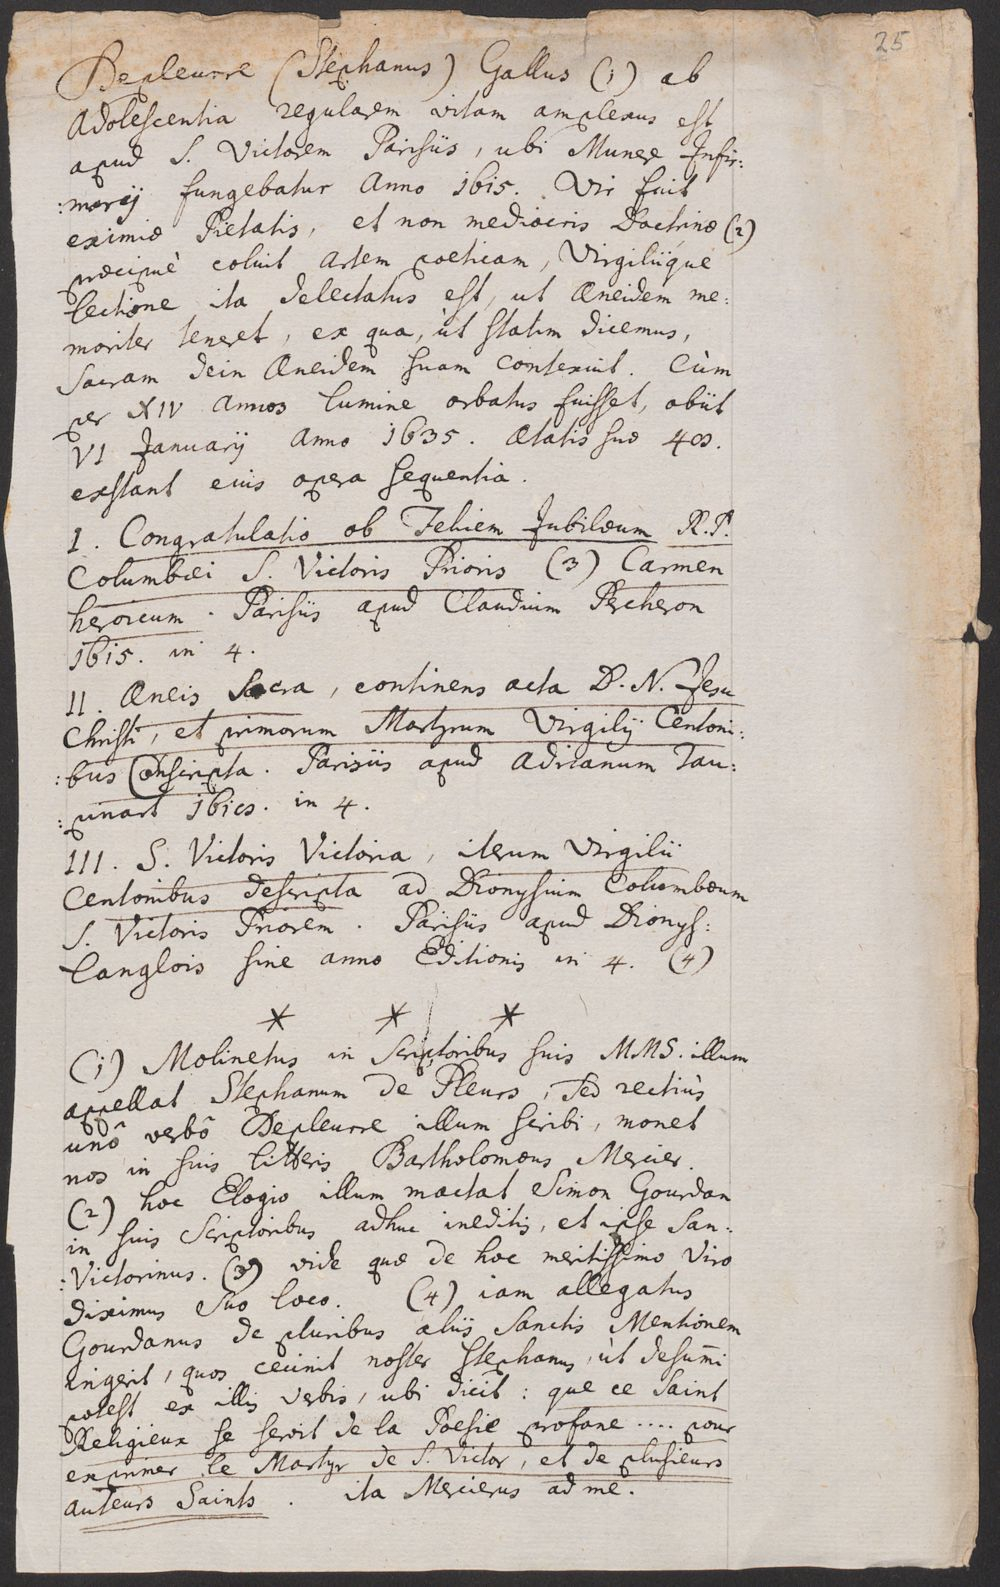 25
Depleurre (Stephanus) Gallus (1) ab
Adolescentia regularem vitam amplexus est
apud S. Victorem Parisiis, ubi Munere Infir:
:marij fungebatur Anno 1615. Vir fuit
eximiæ Pietatis, et non mediocris Doctrinæ (2)
præcipuè coluit Artem poeticam, Virgiliique
lectione ita delectatus est, ut Æneidem me:
moriter teneret, ex qua, ùt statim dicemus,
Sacram dein Æneidem suam contexuit. Cùm
per XIV Annos lumine orbatus fuisset, obiit
VI Januarij Anno 1635. Ætatis suæ
exstant eius opera sequentia.
I. Congratulatio ob Jubilæum R.P.
Columbæi S. Victoris Prioris (3) Carmen
heroicum. Parisiis apud Claudium Percheron
1615. in 4.
II. Æneis Sacra, continens acta D. N. Jesu
Christi, et primorum Martyrum Virgilij Centoni:
:bus Conscripta. Parisiis apud Adrianum Tau:
:pinart in 4.
III. S. Victoris Victoria, iterum Virgilii
Centonibus descripta ad Dionysium Columbæum
S. Victoris Priorem. Parisiis apud Dionys:
Langlois sine anno Editionis in 4. (4)
* * *
(1) Molinetus in Scriptoribus suis MMS. illum
appellat Stephanum de Pleurs, sed rectiùs
unô verbô Depleurre illum scribi, monet
nos in suis litteris Bartholomæus Mercier.
(2) hoc Elogio illum mactat Simon Gourdan
in suis Scriptoribus adhuc ineditis, et ipse San:
:Victorinus. (3) vide quæ de hoc meritissimo Viro
diximus suo loco. (4) iam allegatus
Gourdanus de pluribus aliis Sanctis Mentionem
ingerit, quos cecinit noster Stephanus, ùt desumi
potest ex illis verbis, ubi dicit: que ce Saint
Religieux se servit de la Poesie profane .... pour
exprimer le Martyr de S. Victor, et de plusieurs
auteurs Saints. ita Mercierus ad me.